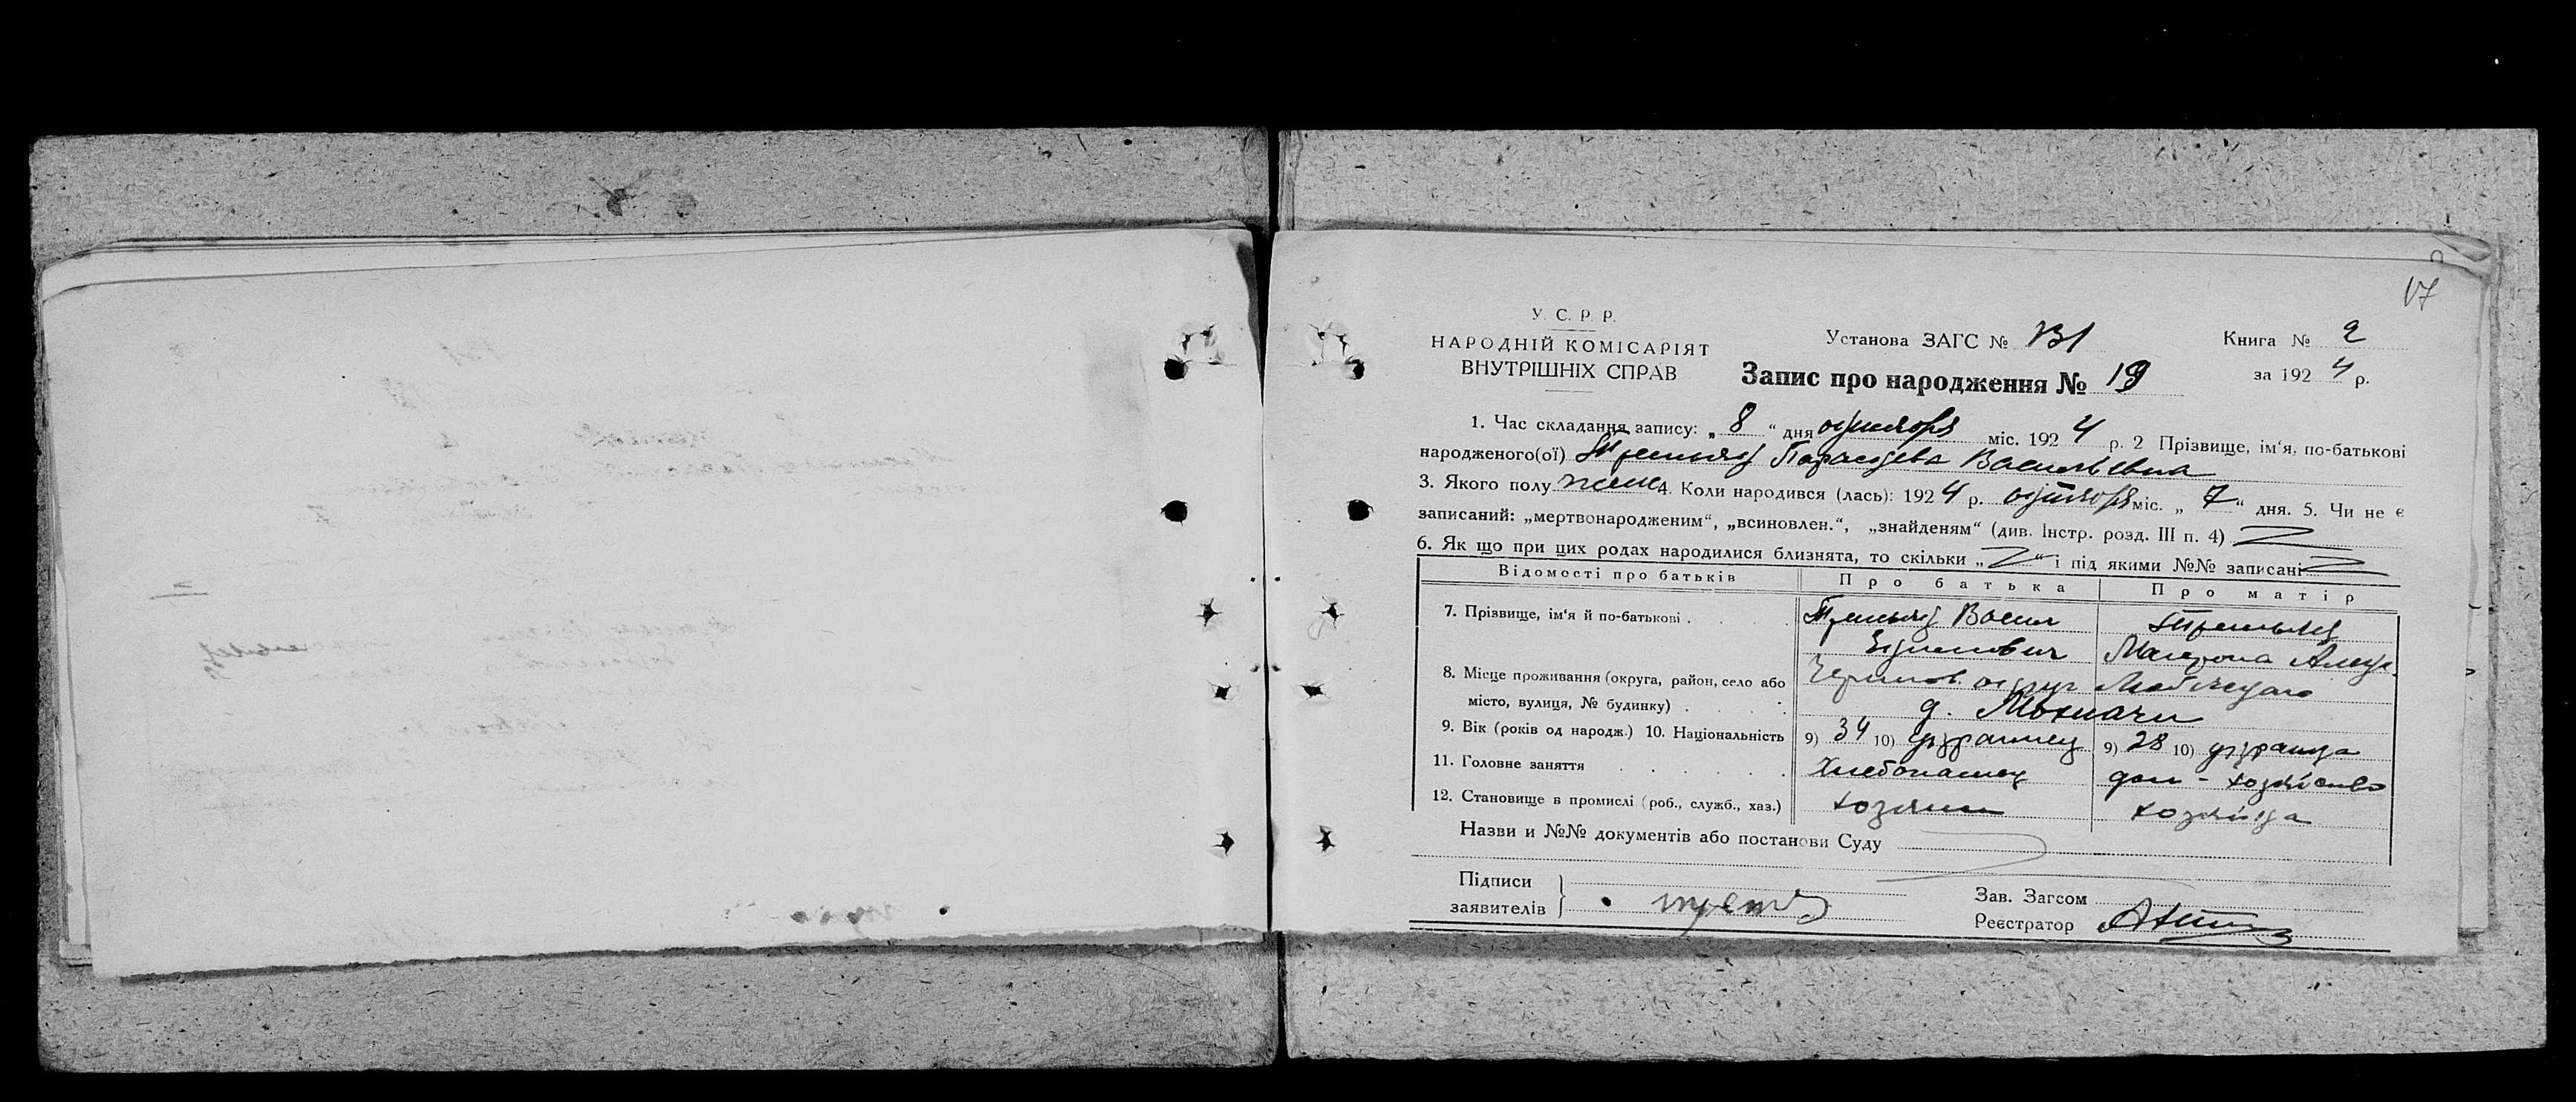 17
У. С. Р. Р.
НАРОДНІЙ КОМІСАРІЯТ
ВНУТРІШНІХ СПРАВ
Установа ЗАГС №
Книга № 2
Запис про народження № 19
за 1924 р.
1. Час складання запису: „8“ дня октября міс. 1924 р. 2 Прізвище, ім‘я, по-батькові
народженого(ої) Третьяк Параскева Васильевна
3. Якого полу женс 4. Коли народився (лась): 1924 р. октября міс. „7“ дня. 5. Чи не є
записаний: „мертвонародженим“, „всиновлен.“, „знайденям“ (див. Інстр. розд. III п. 4)
6. Як що при цих родах народилися близнята, то скільки „ “ і під якими №№ записані
Відомості про батьків Про батька Про матір
7. Прізвище, ім‘я й по-батькові . Третьяк Васил Третьяк
Матрона
8. Місце проживання (округа, район, село або Чернигов. округ Любечского
місто, вулиця, № будинку) . д. Мохначи
9. Вік (років од народж.) 10. Національність 9) 34 10) украинец 9) 28 10) украинка
11. Головне заняття Хлебопашец дом-хозяйство
12. Становище в промислі (роб., служб., хаз.) хозяин хозяйка
Назви и №№ документів або постанови Суду
Підписи
заявителів
Зав. Загсом
Реєстратор